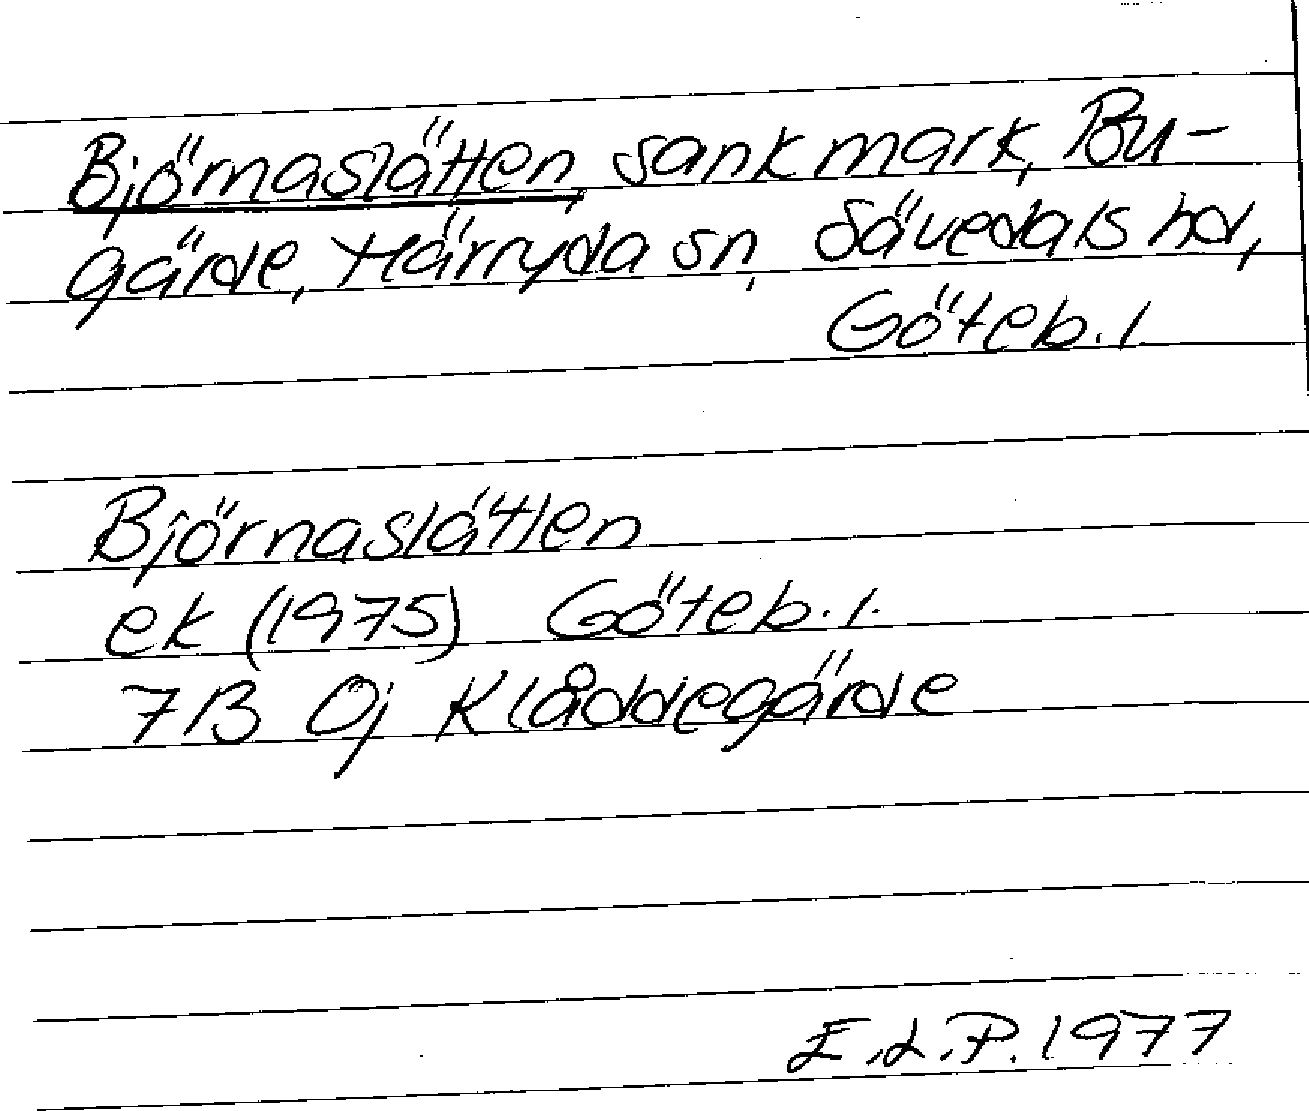 Björnaslätten, sankmark, Bu-
gärde, Härryda sn, Sävedals hd,
Göteb. l
Björnaslätten
ek (1975) Göteb. l.
7B 0j Klåddegärde
E.L.P. 1977